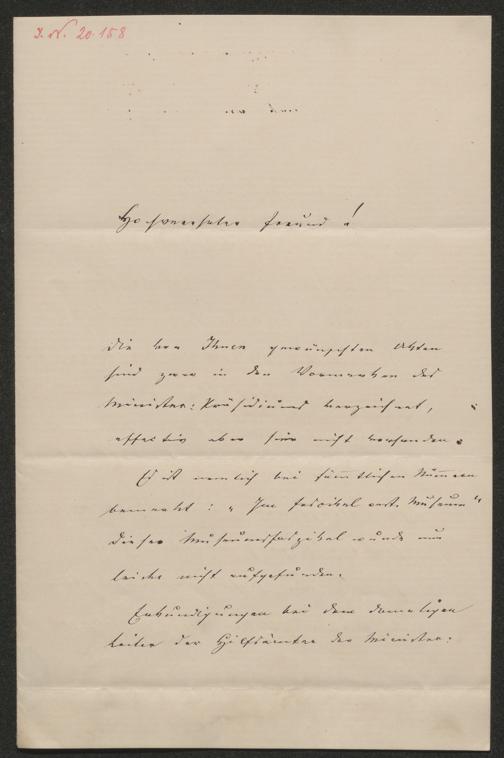 I. N. 20.158
Hochverehrter Freund!
Die von Ihnen gewünschten Akten
sind zwar in den Vormerken des
Minister: Präsidiums verzeichnet,
effectiv aber hier nicht vorhanden.
Es ist nemlich bei sämtlichen Nummern
bemerkt: „Im Faszikel Museum“
Dieser Museumsfaszikel wurde nun
leider nicht aufgefunden.
Erkundigungen bei dem damaligen
Leiter der Hilfsämter des Minister: